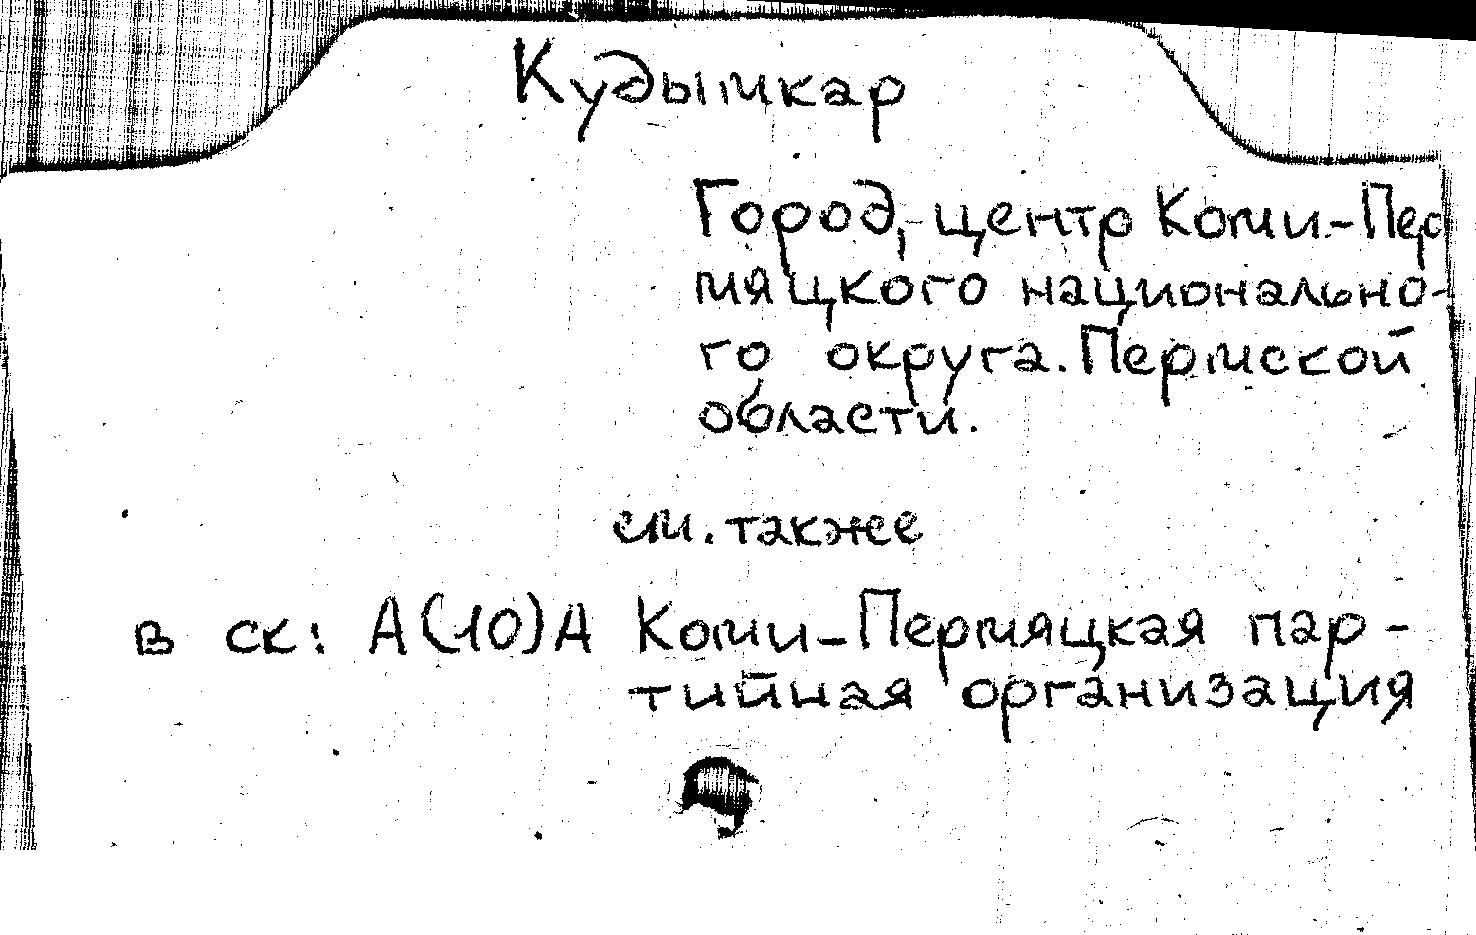 Кудымкар
Город, центр Коми-Пер
мяцкого национально-
го округа. Пермской
области.
см. также
в ск: А(10)А Коми-Пермяцкая пар-
тийная организация